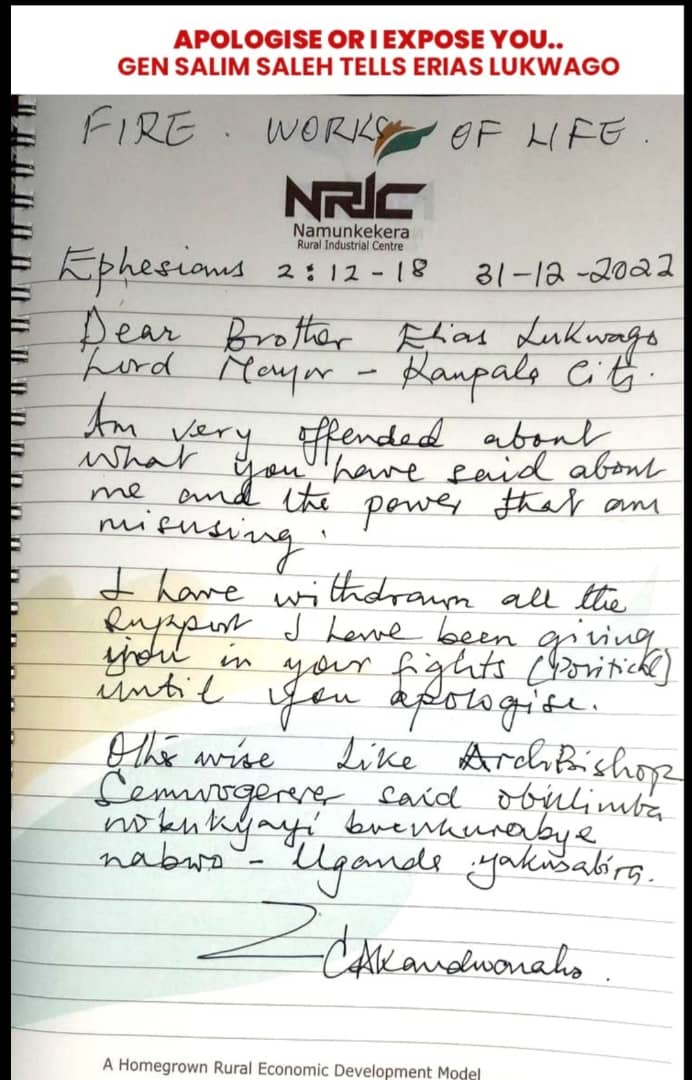 APOLOGISE OR I EXPOSE YOU..
GEN SALIM SALEH TELLS ERIAS LUKWAGO
FIRE . WORKS OF LIFE .
NRIC
Namunkekera
Rural Industrial Centre
Ephesians 2:12-18 31-12-2022
Dear Brother Elias Lukwago
Lord Mayor - Kampala City.
Am very offended about
what you have said about
me and the power that am
misusing.
I have withdrawn all the
support I have been giving
you in your fights (Political)
until you apologise.
Otherwise Like ArchBishop
Semwogerere said obulimba
nokukyayi
nabwo - Uganda yakusabira.
CAkandwonaho.
A Homegrown Rural Economic Development Model